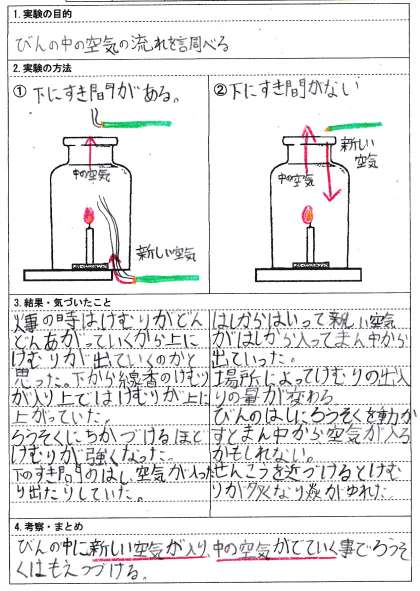 1. 実験の目的
びんの中の空気の流れを調べる
2. 実験の方法
① 下にすき間がある。
中の空気
新しい空気
② 下にすき間がない
新しい
空気
中の空気
3. 結果・気づいたこと
の時はけむりがどん
どんあがっていくから上に
けむりが出ていくのかと
思った。下から線香のけむり
が入り上ではけむりが上に
上がっていた。
ろうそくにちかづけるほど
けむりが強くなった。
下のすき間のはし、空気が入った
り出たりしていた。
はしからはいって新しい空気
がはしから入ってまん中から
出ていった。
場所によってけむりの出入
りの量が変わる
びんのはしにろうそくを動か
すとまん中から空気が入る
かもしれない。
せんこうを近づけるとけむ
りが多くなり炎がゆれた
4. 考察・まとめ
びんの中に新しい空気が入り、中の空気がでていく事でろうそ
くはもえつづける。